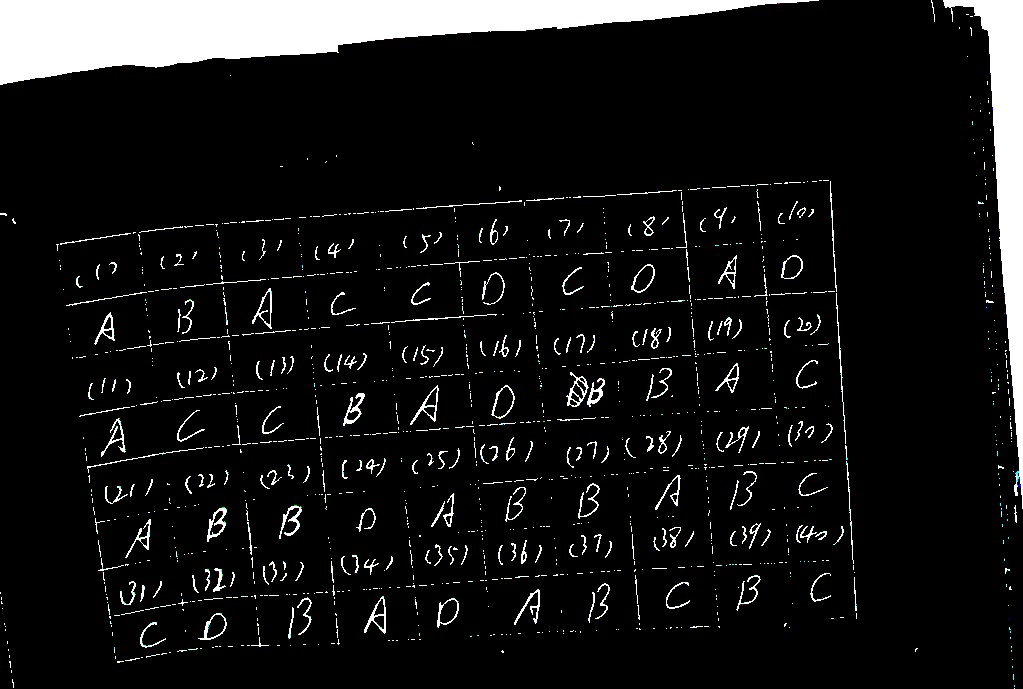 (1) (2) (3) (4) (5) (6) (7) (8) (9) (10)
A B A C C D C D A D
(11) (12) (13) (14) (15) (16) (17) (18) (19) (20)
A C C B A D B B A C
(21) (22) (23) (24) (25) (26) (27) (28) (29) (30)
A B B D A B B A B C
(31) (32) (33) (34) (35) (36) (37) (38) (39) (40)
C D B A D A B C B C